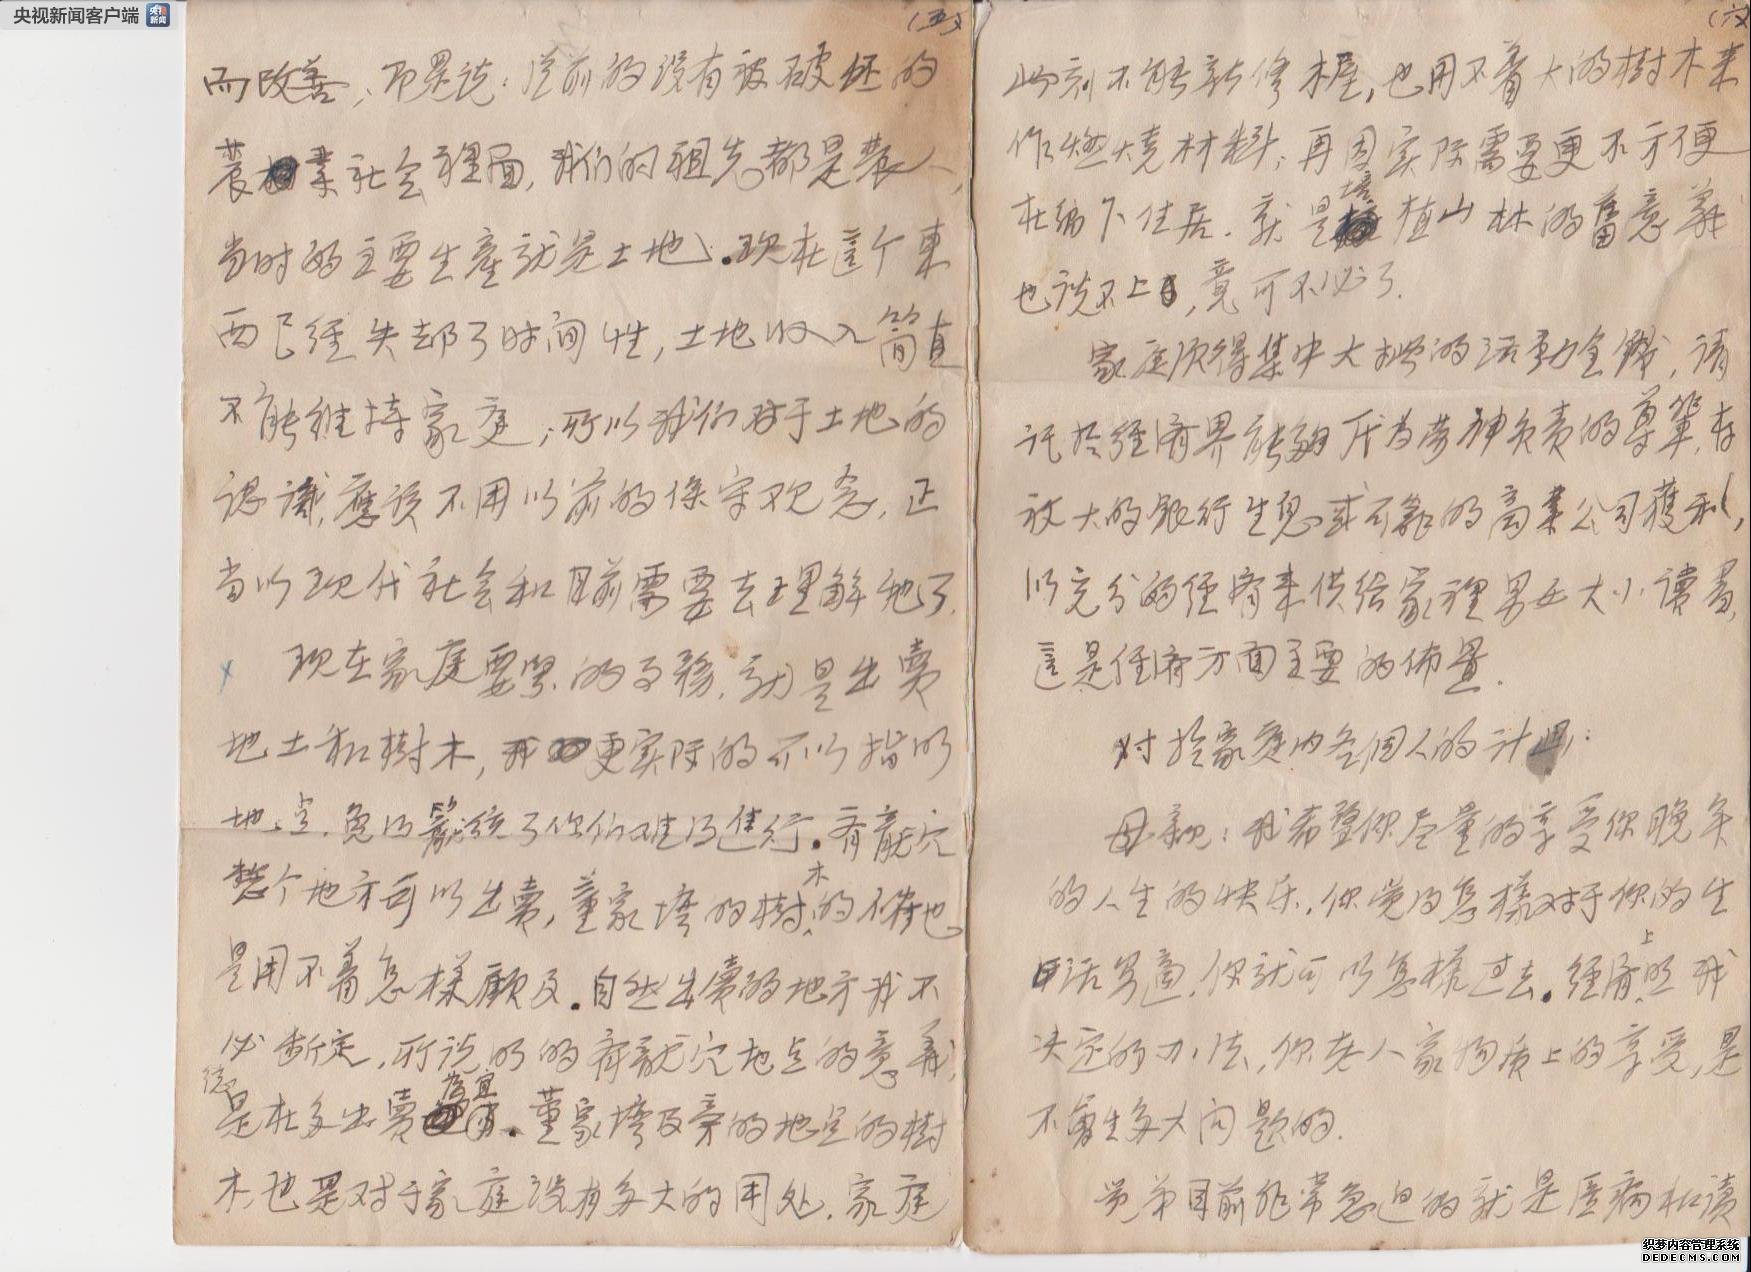 央视新闻客户端
央视新闻
(五)
而改善,即是说:从前的没有被破坏的
农业社会裡面,我们的祖先都是农人,
当时的主要生產就是土地.现在這个東
西已经失却了时间性,土地收入簡直
不能维持家庭,所以我们对于土地的
認識,應该不用以前的保守观念,正
当以现代社会和目前需要去理解他了.
现在家庭要緊的事務,就是出卖
地土和樹木,我更实际的可以指明
地点,免得籠统了你们难得進行.齊龍穴
整个地方可以出賣,董家塆的樹木的不
是用不着怎樣顧及.自然出賣的地方我不
必断定,所说明的齊龍穴地点的意義,
总是在多出賣為宜.董家塆及旁的地点的樹
木也是对于家庭没有多大的用处.家庭
(六)
此刻不能新修木屋,也用不着大的樹木来
作燃燒材料,再因实际需要更不方便
在鄉下住居.就是培植山林的舊意義
也谈不上,竟可不必了.
家庭须得集中大批的活動金錢,请
託於经濟界能夠代为劳神负责的尊輩,存
放大的銀行生息或可靠的商業公司獲利,
以充分的经濟来供给家裡男女大小讀書,
這是经濟方面主要的佈置.
对於家庭内各個人的计画:
母親:我希望你尽量的享受你晚年
的人生的快乐.你觉得怎樣对于你的生
活舒適,你就可以怎样过去.经济上照我
决定的办法,你老人家物质上的享受,是
不會生多大问题的.
兄弟目前非常急迫的就是医病和读
织梦内容管理系统
DEDECMS.COM